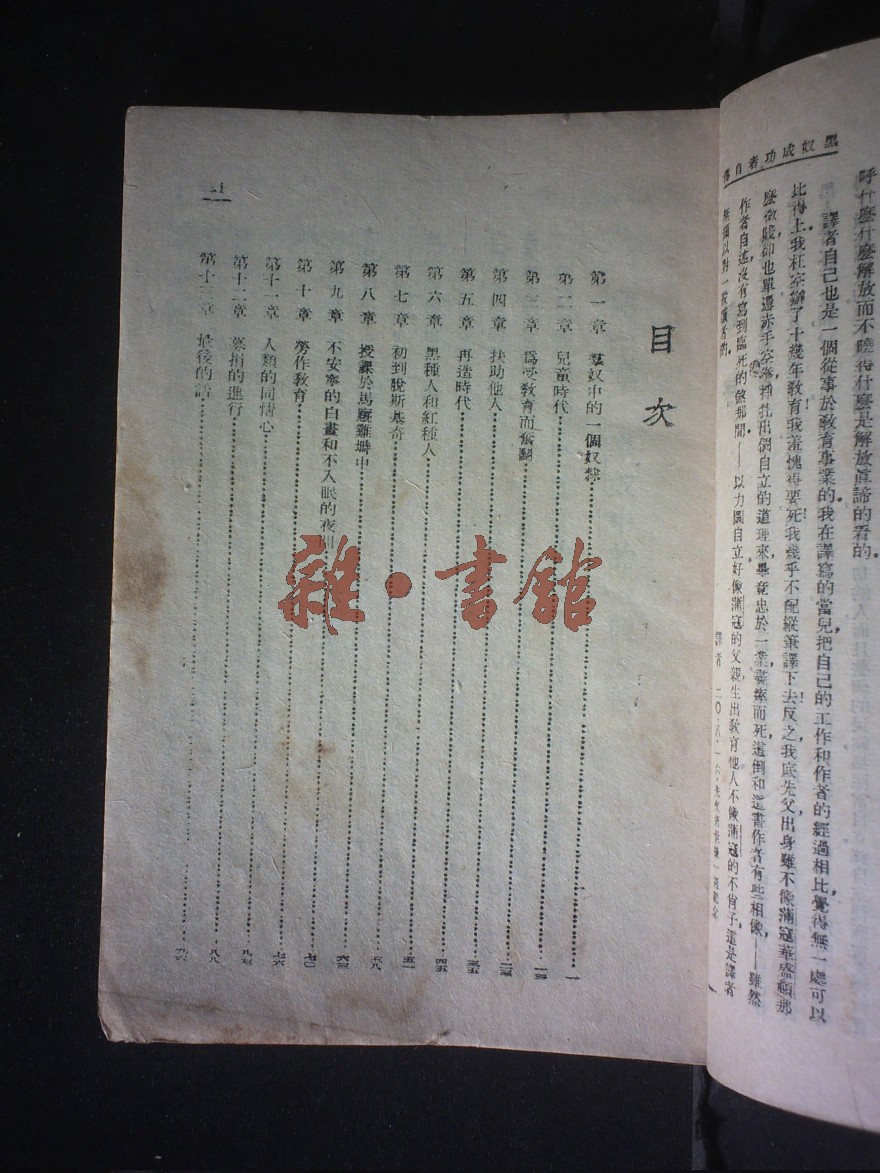 黑奴成功者自傳
呼什麼什麼解放而不曉得什麼是解放眞諦的看的。
譯者自己也是一個從事於教育事業的我在譯寫的當兒把自己的工作和作者的經過相比覺得無一處可以
比得上我枉空辦了十幾年教育我羞愧得要死我幾乎不配縱筆譯下去反之我底先父出身雖不像滿寇華盛頓那
麼微賤卻也單憑赤手空拳掙扎出個自立的道理來畢竟忠於一業
而死這倒和這書作者有些相像——雖然
作者自述沒有寫到臨死的煞那間——以力圖自立好像滿寇的父親生出教育他人不像滿寇的不肖子這是譯者
無顏以對一般讀者的。
譯者
目次
第一章 羣奴中的一個奴隸 一
第二章 兒童時代
第三章 爲受教育而奮鬭
第四章 扶助他人
第五章 再造時代
第六章 黑種人和紅種人 四五
第七章 初到脫斯基奇 五一
第八章 授課於馬廐雞塒中 五九
第九章 不安寧的白晝和不入眠的夜間
第十章 勞作教育
第十一章 人類的同情心 七六
第十二章 募捐的進行
第十三章 最後的話
雜·書館